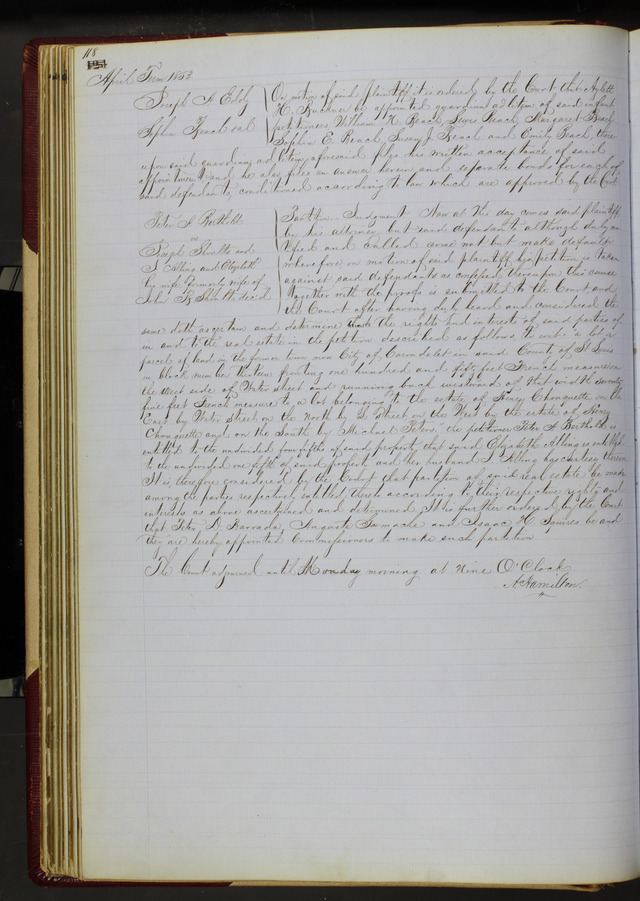 118
April Term 1853
Joseph A Eddy
vs
Sophia Reach et al
On motion of said plaintiff it is ordered by the Court that
H. Buckner be appointed guardian ad litem of said infant
petitioners William H. Reach, Lewis Reach, Margaret Reach
Sophia E. Reach, Susan J Reach and Emily Reach,
upon said guardian ad litem aforesaid files his written acceptance of said
appointment and he also files an answer herein and separate bonds for each of
said defendants, conditioned according to law which are approved by the Court
Peter A Berthold
vs
Joseph Shultz and
J Alling and Elizabeth
his wife formerly wife of
John B Shultz dec'd
Partition. Judgment Now at this day comes said plaintiff
by his attorney but said defendants although duly no
tified and called come not but make default
wherefore on motion of said plaintiff his petition is taken
against said defendants as confessed thereupon this cause
together with the proofs is submitted to the Court and
the Court after having duly heard and considered the
same doth ascertain and determine the rights and interests of said parties of
in and to the real estate in the petition described as follows to wit: a lot or
parcel of land in the former town now City of Carondelet in said County of St Louis
in block number thirteen fronting one hundred and fifty feet French measure on
the west side of Water street and running back westward of that width seventy
five feet French measure to a lot belonging to the estate of Henry Chouquette on the
East by Water Street on the North by L Street on the West by the estate of Henry
Chouquette and on the South by Michael Peters, the petitioner Peter A Berthold is
entitled to the undivided four fifths of said property, that said Elizabeth Alling is entitled
to the undivided one fifth of said property and her husband J Alling has curtesy therein
It is therefore considered by the Court that partition of said real estate be made
among the parties respectively entitled thereto according to their respective rights and
interests as above ascertained and determined It is further ordered by the Court
that Peter D Barrada Auguste Gamache and Isaac H Squires be and
they are hereby appointed Commissioners to make such partition
The Court adjourned until Monday morning at Nine O'Clock
A Hamilton